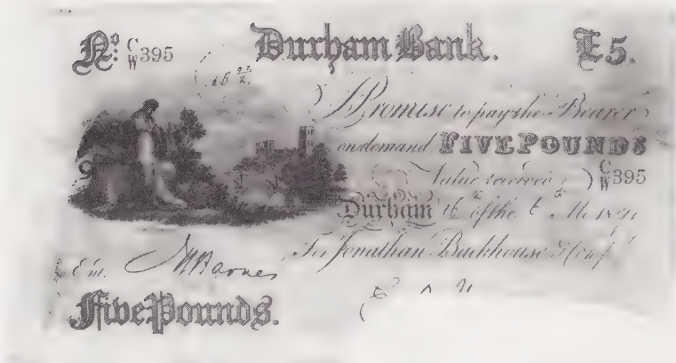 No: C/W 395 Durham Bank. £5.
I Promise to pay the Bearer
on demand FIVE POUNDS
Value received C/W 395
Durham of the
For Jonathan Backhouse & Comp
Barnes
Five Pounds.